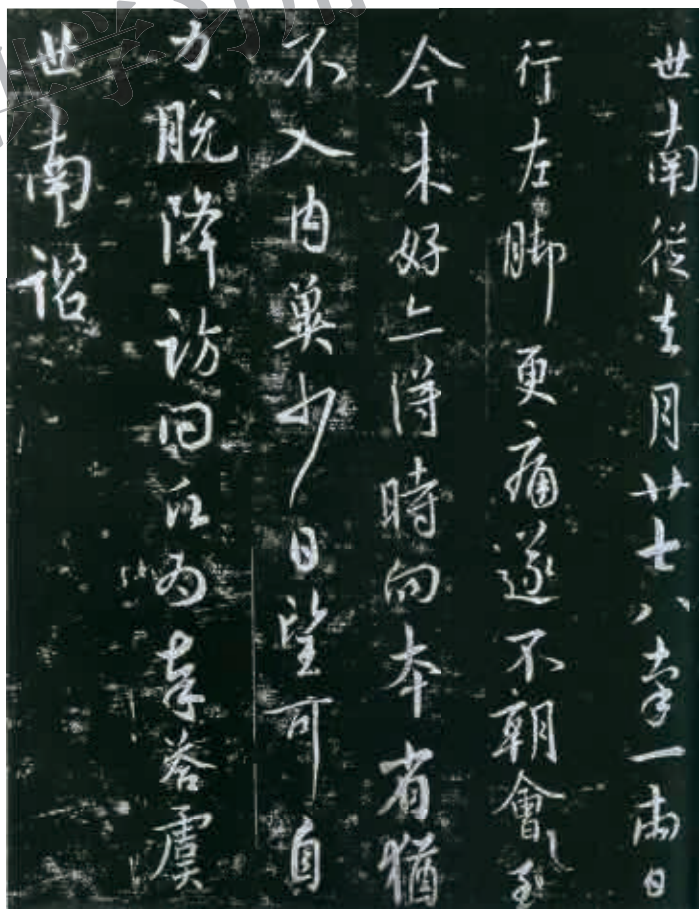 世南從去月廿七八牽一兩日
行左脚更痛遂不朝會至
今未好亦得時向本省猶
不入内冀少日望可自
力脱降訪問為奉答虞
世南諮